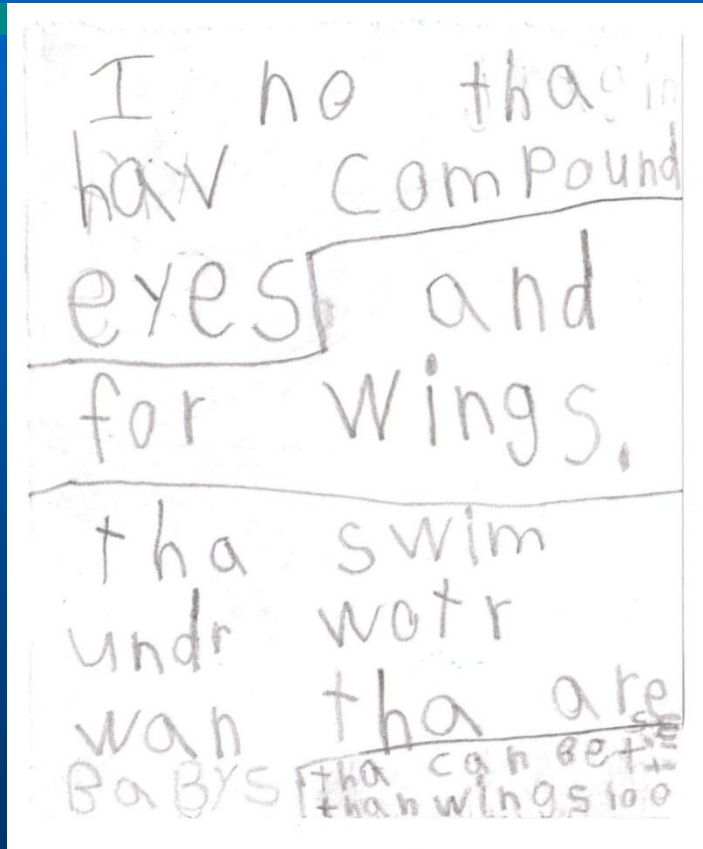 I no tha
hav compound
eyes and
for wings.
tha swim
undr wotr
wan tha are
BaBYS
tha can Bet
than wings 100